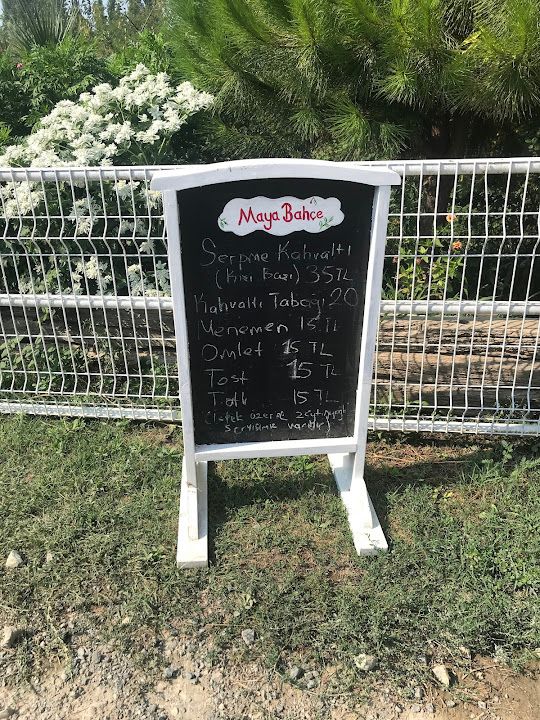 Maya Bahçe
Serpme Kahvaltı
(Kişi Başı) 35 TL
Kahvaltı Tabağı 20
Menemen 15 TL
Omlet 15 TL
Tost 15 TL
Tatlı 15 TL
(İstek üzerine zeytinyağlı
servisimiz vardır)